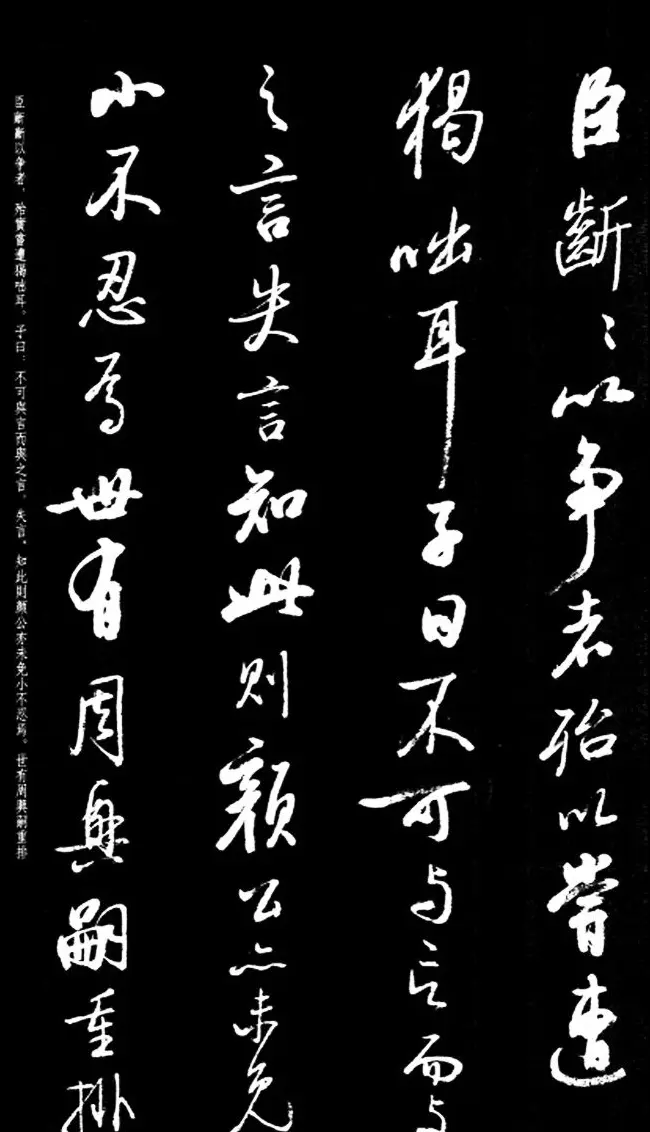 臣齗〻以争者殆以嘗遭
猲咄耳子曰不可与言而与
之言失言知此則顔公亦未免
小不忍焉世有周興嗣重排
臣齗齗以争者，殆實嘗遭猲咄耳。子曰：不可與言而與之言，失言。知此則顏公亦未免小不忍焉。世有周興嗣重排